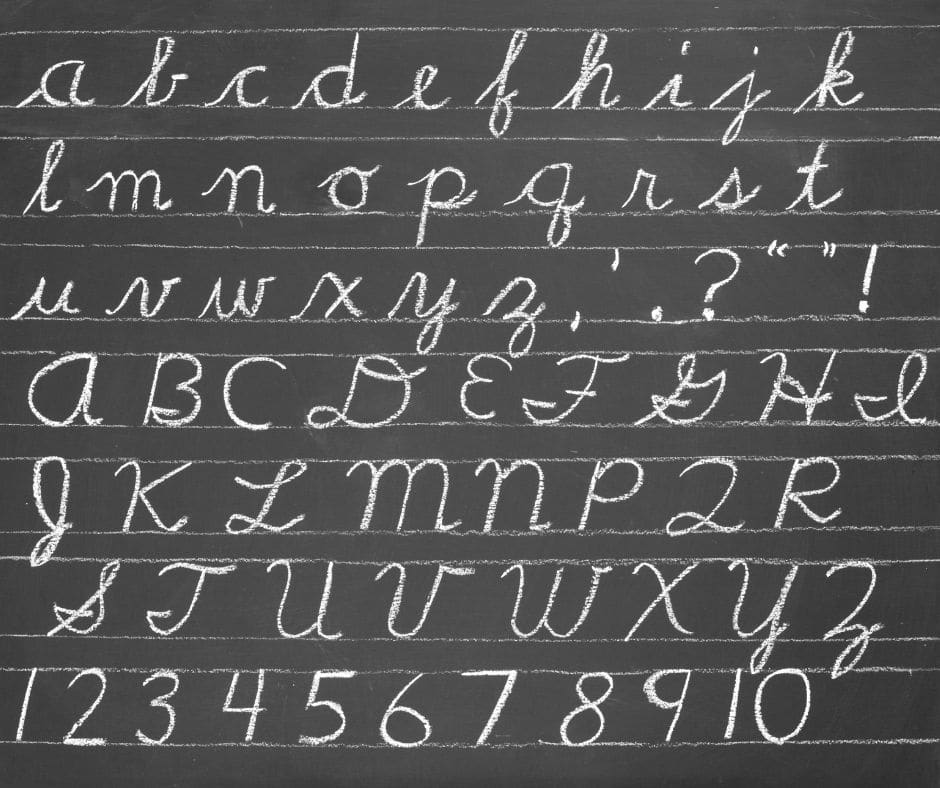 a b c d e f h i j k
l m n o p q r s t
u v w x y z , ' . ? “ ” !
A B C D E F G H I
J K L M N P Q R
S T U V W X Y Z
1 2 3 4 5 6 7 8 9 10